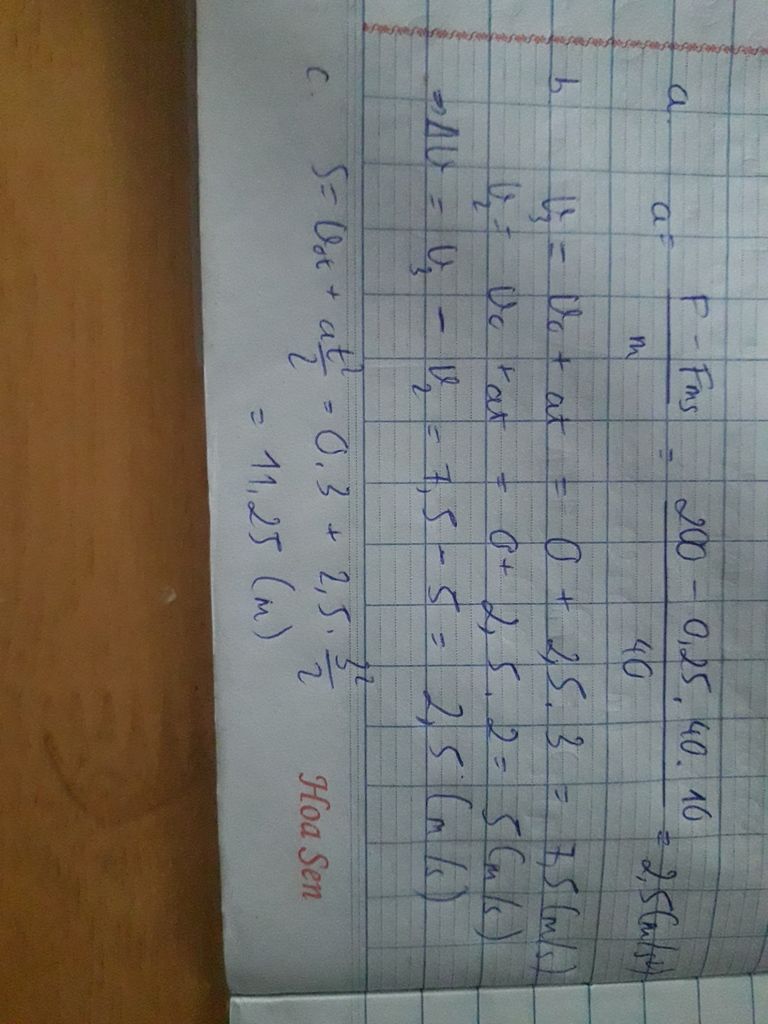 a. a = \frac{F - Fms}{m} = \frac{200 - 0,25. 40. 10}{40} = 2,5 (m/s²)
b v₃ = v₀ + at = 0 + 2,5. 3 = 7,5 (m/s)
v₂ = v₀ + at = 0 + 2,5. 2 = 5 (m/s)
⇒ Δv = v₃ - v₂ = 7,5 - 5 = 2,5 (m/s)
c. S = v₀t + a\frac{t²}{2} = 0. 3 + 2,5. \frac{3²}{2}
= 11,25 (m)
Hoa Sen